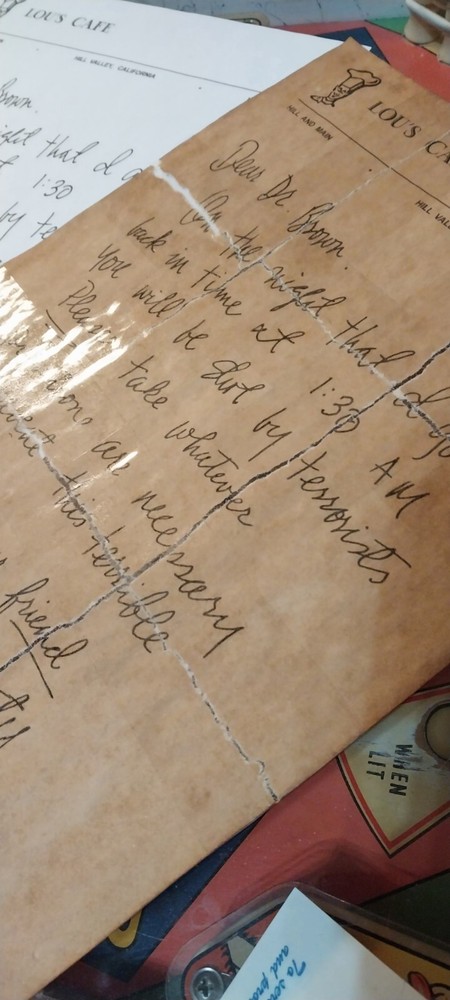 LOU'S CAFE
HILL VALLEY, CALIFORNIA
Brown.
night that I
1:30
by te
LOU'S CA
HILL AND MAIN
HILL VALL
Dear Dr. Brown.
On the night that I go
back in time at 1:30 AM
You will be shot by terrorists
Please take whatever
are necessary
this terrible
friend
WHEN
LIT
To
and